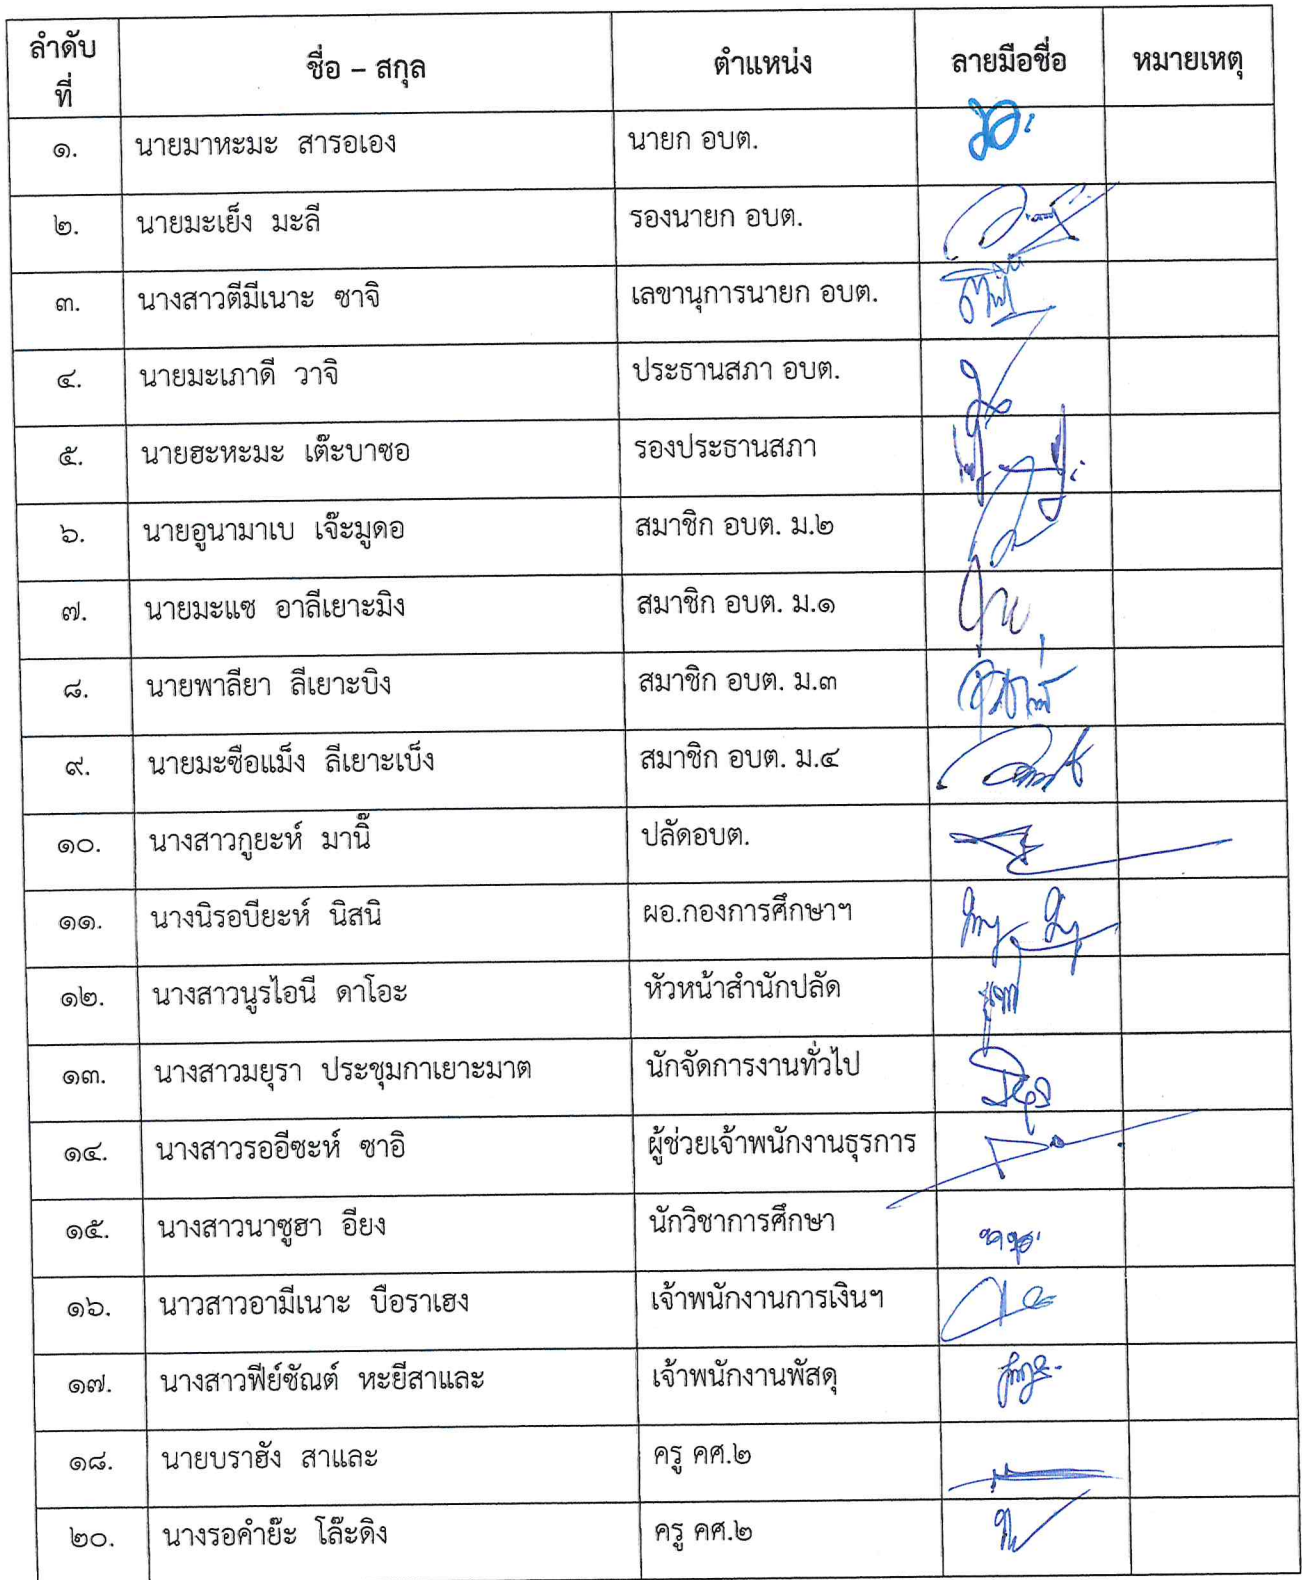 ลำดับที่ ชื่อ – สกุล ตำแหน่ง ลายมือชื่อ หมายเหตุ
๑. นายมาหะมะ สารอเอง นายก อบต.
๒. นายมะเย็ง มะลี รองนายก อบต.
๓. นางสาวตีมีเนาะ ซาจิ เลขานุการนายก อบต.
๔. นายมะเภาดี วาจิ ประธานสภา อบต.
๕. นายฮะหะมะ เต๊ะบาซอ รองประธานสภา
๖. นายอูนามาเบ เจ๊ะมูดอ สมาชิก อบต. ม.๒
๗. นายมะแซ อาลีเยาะมิง สมาชิก อบต. ม.๑
๘. นายพาลียา ลีเยาะบิง สมาชิก อบต. ม.๓
๙. นายมะซือแม็ง ลีเยาะเบ็ง สมาชิก อบต. ม.๔
๑๐. นางสาวกูยะห์ มานิ๊ ปลัดอบต.
๑๑. นางนิรอบียะห์ นิสนิ ผอ.กองการศึกษาฯ
๑๒. นางสาวนูรไอนี ดาโอะ หัวหน้าสำนักปลัด
๑๓. นางสาวมยุรา ประชุมกาเยาะมาต นักจัดการงานทั่วไป
๑๔. นางสาวรออีซะห์ ซาอิ ผู้ช่วยเจ้าพนักงานธุรการ
๑๕. นางสาวนาซูฮา อียง นักวิชาการศึกษา
๑๖. นาวสาวอามีเนาะ บือราเฮง เจ้าพนักงานการเงินฯ
๑๗. นางสาวฟีย์ซัณต์ หะยีสาและ เจ้าพนักงานพัสดุ
๑๘. นายบราฮัง สาและ ครู คศ.๒
๒๐. นางรอคำย๊ะ โล๊ะดิง ครู คศ.๒